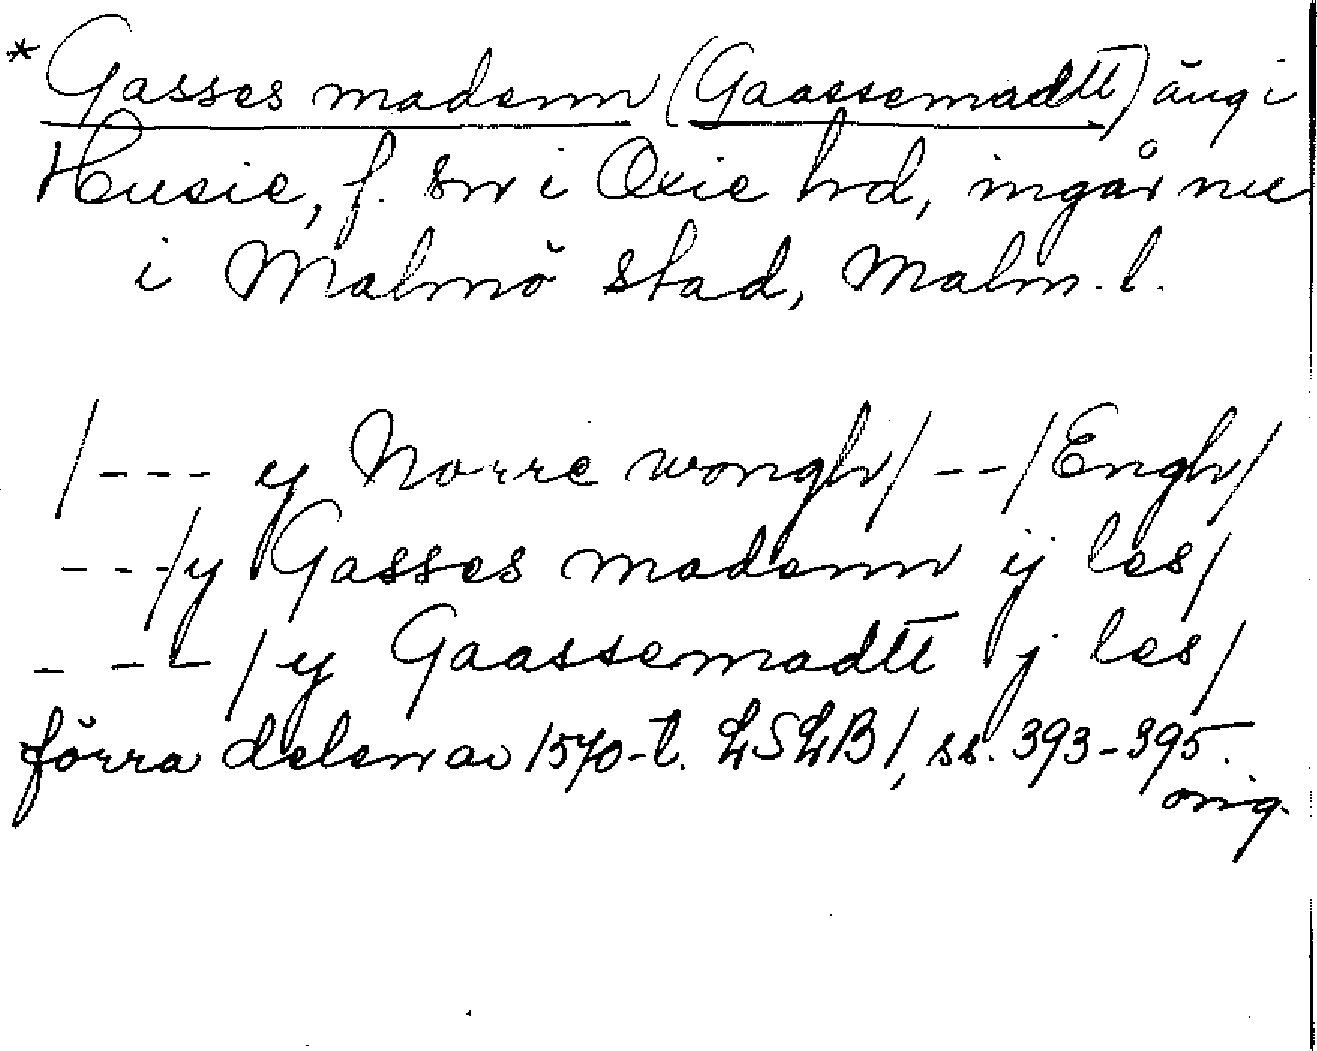 * Gasses madenn (Gaassemadtt) äng i
Husie, f. sn i Oxie hd, ingår nu
i Malmö stad, Malm. l.
/--- y Norre wongh/ --/Engh/
---/y Gasses madenn ij les/
- --- / y Gaassemadtt j les/
förra delen av 1570-t. LSLB 1, ss. 393-395.
orig.